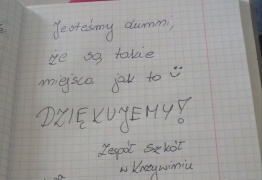 Jesteśmy dumni,
że są takie
miejsca jak to
DZIĘKUJEMY!
Zespół Szkół
w Krzywiniu